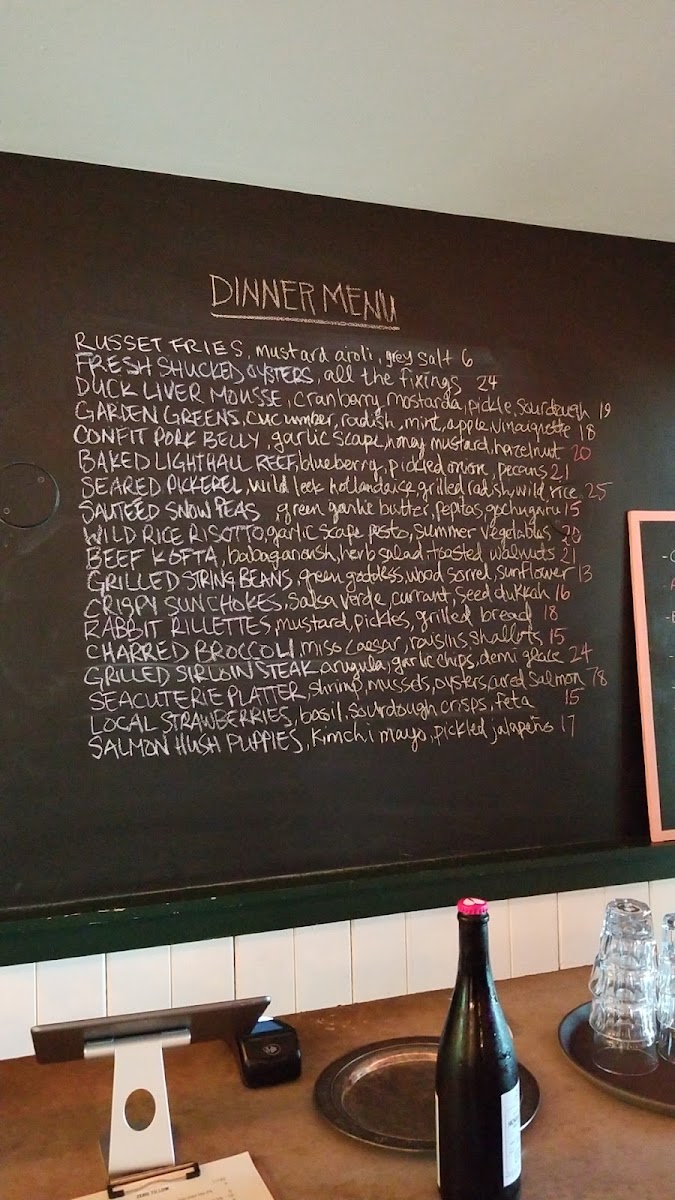 DINNER MENU
RUSSET FRIES, mustard aioli, grey salt 6
FRESH SHUCKED OYSTERS, all the fixings 24
DUCK LIVER MOUSSE, cranberry mostarda, pickle, sourdough 19
GARDEN GREENS, cucumber, radish, mint, apple vinaigrette 18
CONFIT PORK BELLY, garlic scape, honey mustard, hazelnut 20
BAKED LIGHTHALL REEF, blueberry, pickled onion, pecans 21
SEARED PICKEREL, wild leek hollandaise, grilled radish, wild rice 25
SAUTEED SNOW PEAS green garlic butter, pepitas, gochugaru 15
WILD RICE RISOTTO, garlic scape pesto, summer vegetables 20
BEEF KOFTA, babaganoush, herb salad, toasted walnuts 21
GRILLED STRING BEANS, green goddess, wood sorrel, sunflower 13
CRISPY SUNCHOKES, salsa verde, currant, seed dukkah 16
RABBIT RILLETTES, mustard, pickles, grilled bread 18
CHARRED BROCCOLI, miso caesar, raisins, shallots 15
GRILLED SIRLOIN STEAK arugula, garlic chips, demi glace 24
SEACUTERIE PLATTER, shrimp, mussels, oysters, cured salmon 78
LOCAL STRAWBERRIES, basil, sourdough crisps, feta 15
SALMON HUSH PUPPIES, kimchi mayo, pickled jalapeño 17